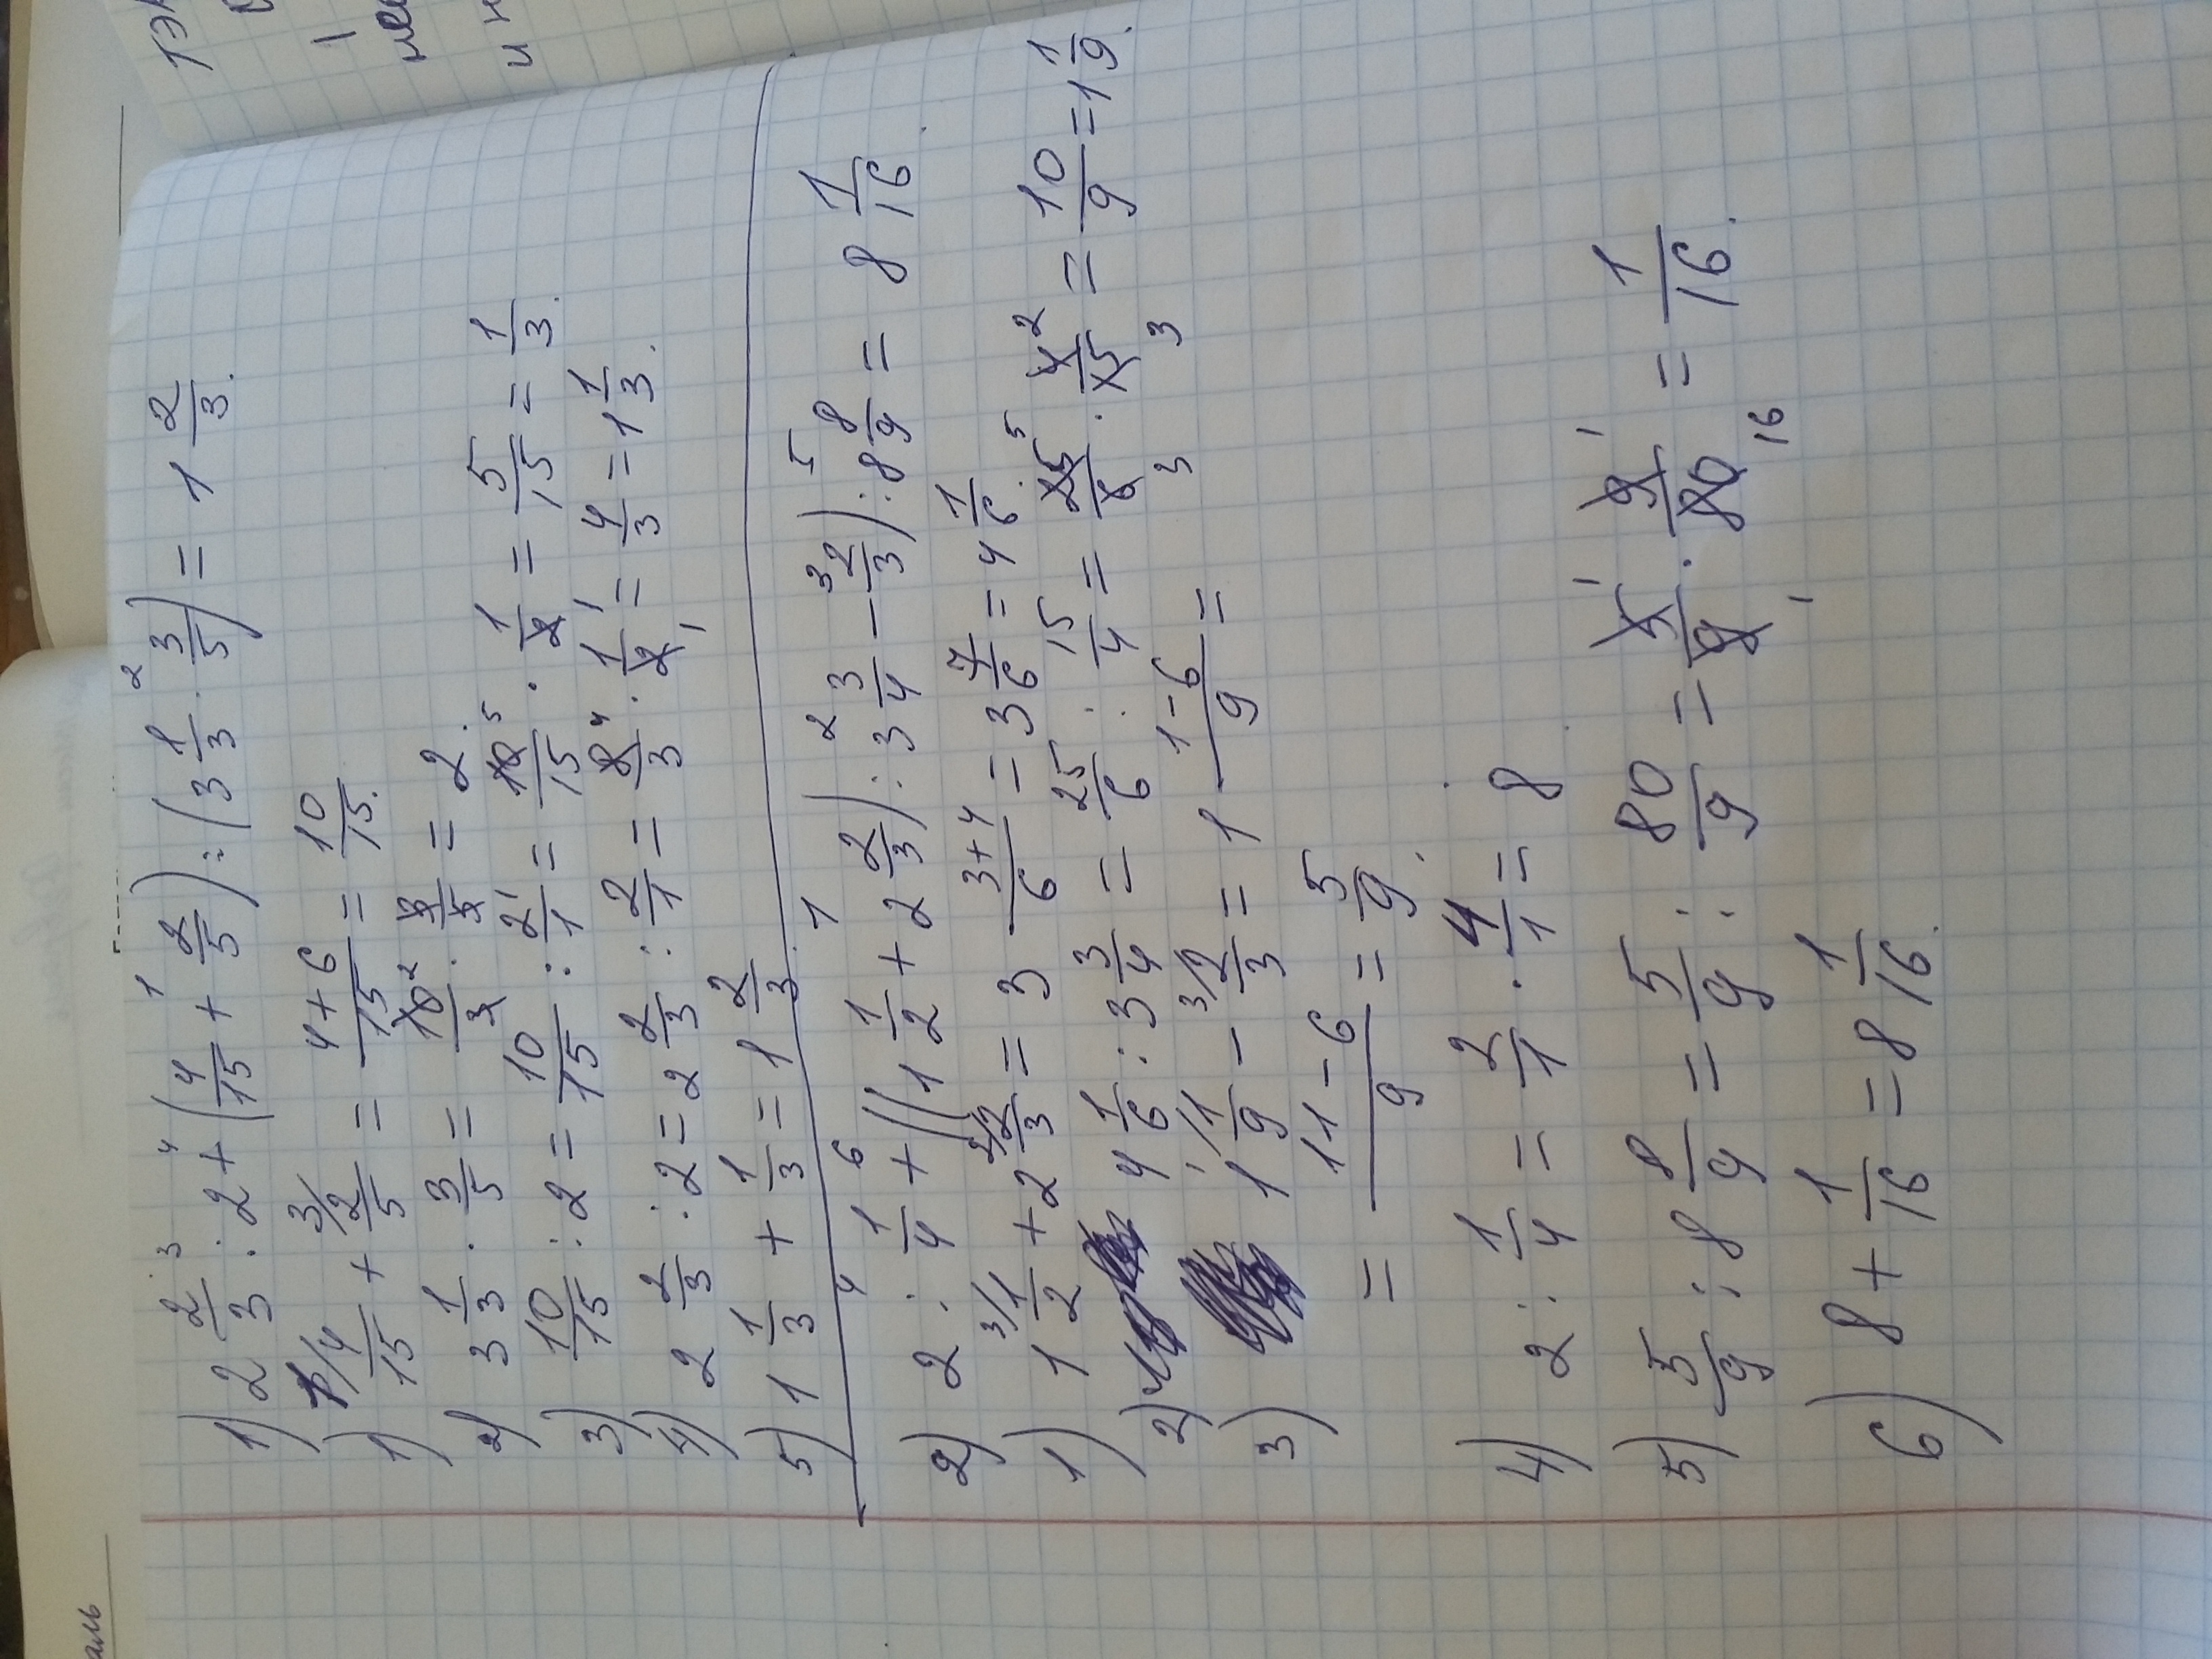 1) 2 2/3 : 2 + (4/15 + 2/5) : (3 1/3 · 3/5) = 1 2/3.
1) 4/15 + 2/5 = (4+6)/15 = 10/15.
2) 3 1/3 · 3/5 = 10/3 · 3/5 = 2.
3) 10/15 : 2 = 10/15 : 2/1 = 10/15 · 1/2 = 5/15 = 1/3.
4) 2 2/3 : 2 = 2 2/3 : 2/1 = 8/3 · 1/2 = 4/3 = 1 1/3.
5) 1 1/3 + 1/3 = 1 2/3.
2) 2 : 1/4 + ((1 1/2 + 2 2/3) : 3 3/4 - 2/3) : 8 8/9 = 8 1/16
1) 1 1/2 + 2 2/3 = 3 (3+4)/6 = 3 7/6 = 4 1/6.
2) 4 1/6 : 3 3/4 = 25/6 : 15/4 = 25/6 · 4/15 = 10/9 = 1 1/9.
3) 1 1/9 - 2/3 = 1 (1-6)/9 =
= (11-6)/9 = 5/9.
4) 2 : 1/4 = 2/1 · 4/1 = 8
5) 5/9 : 8 8/9 = 5/9 : 80/9 = 5/9 · 9/80 = 1/16.
6) 8 + 1/16 = 8 1/16.
аль